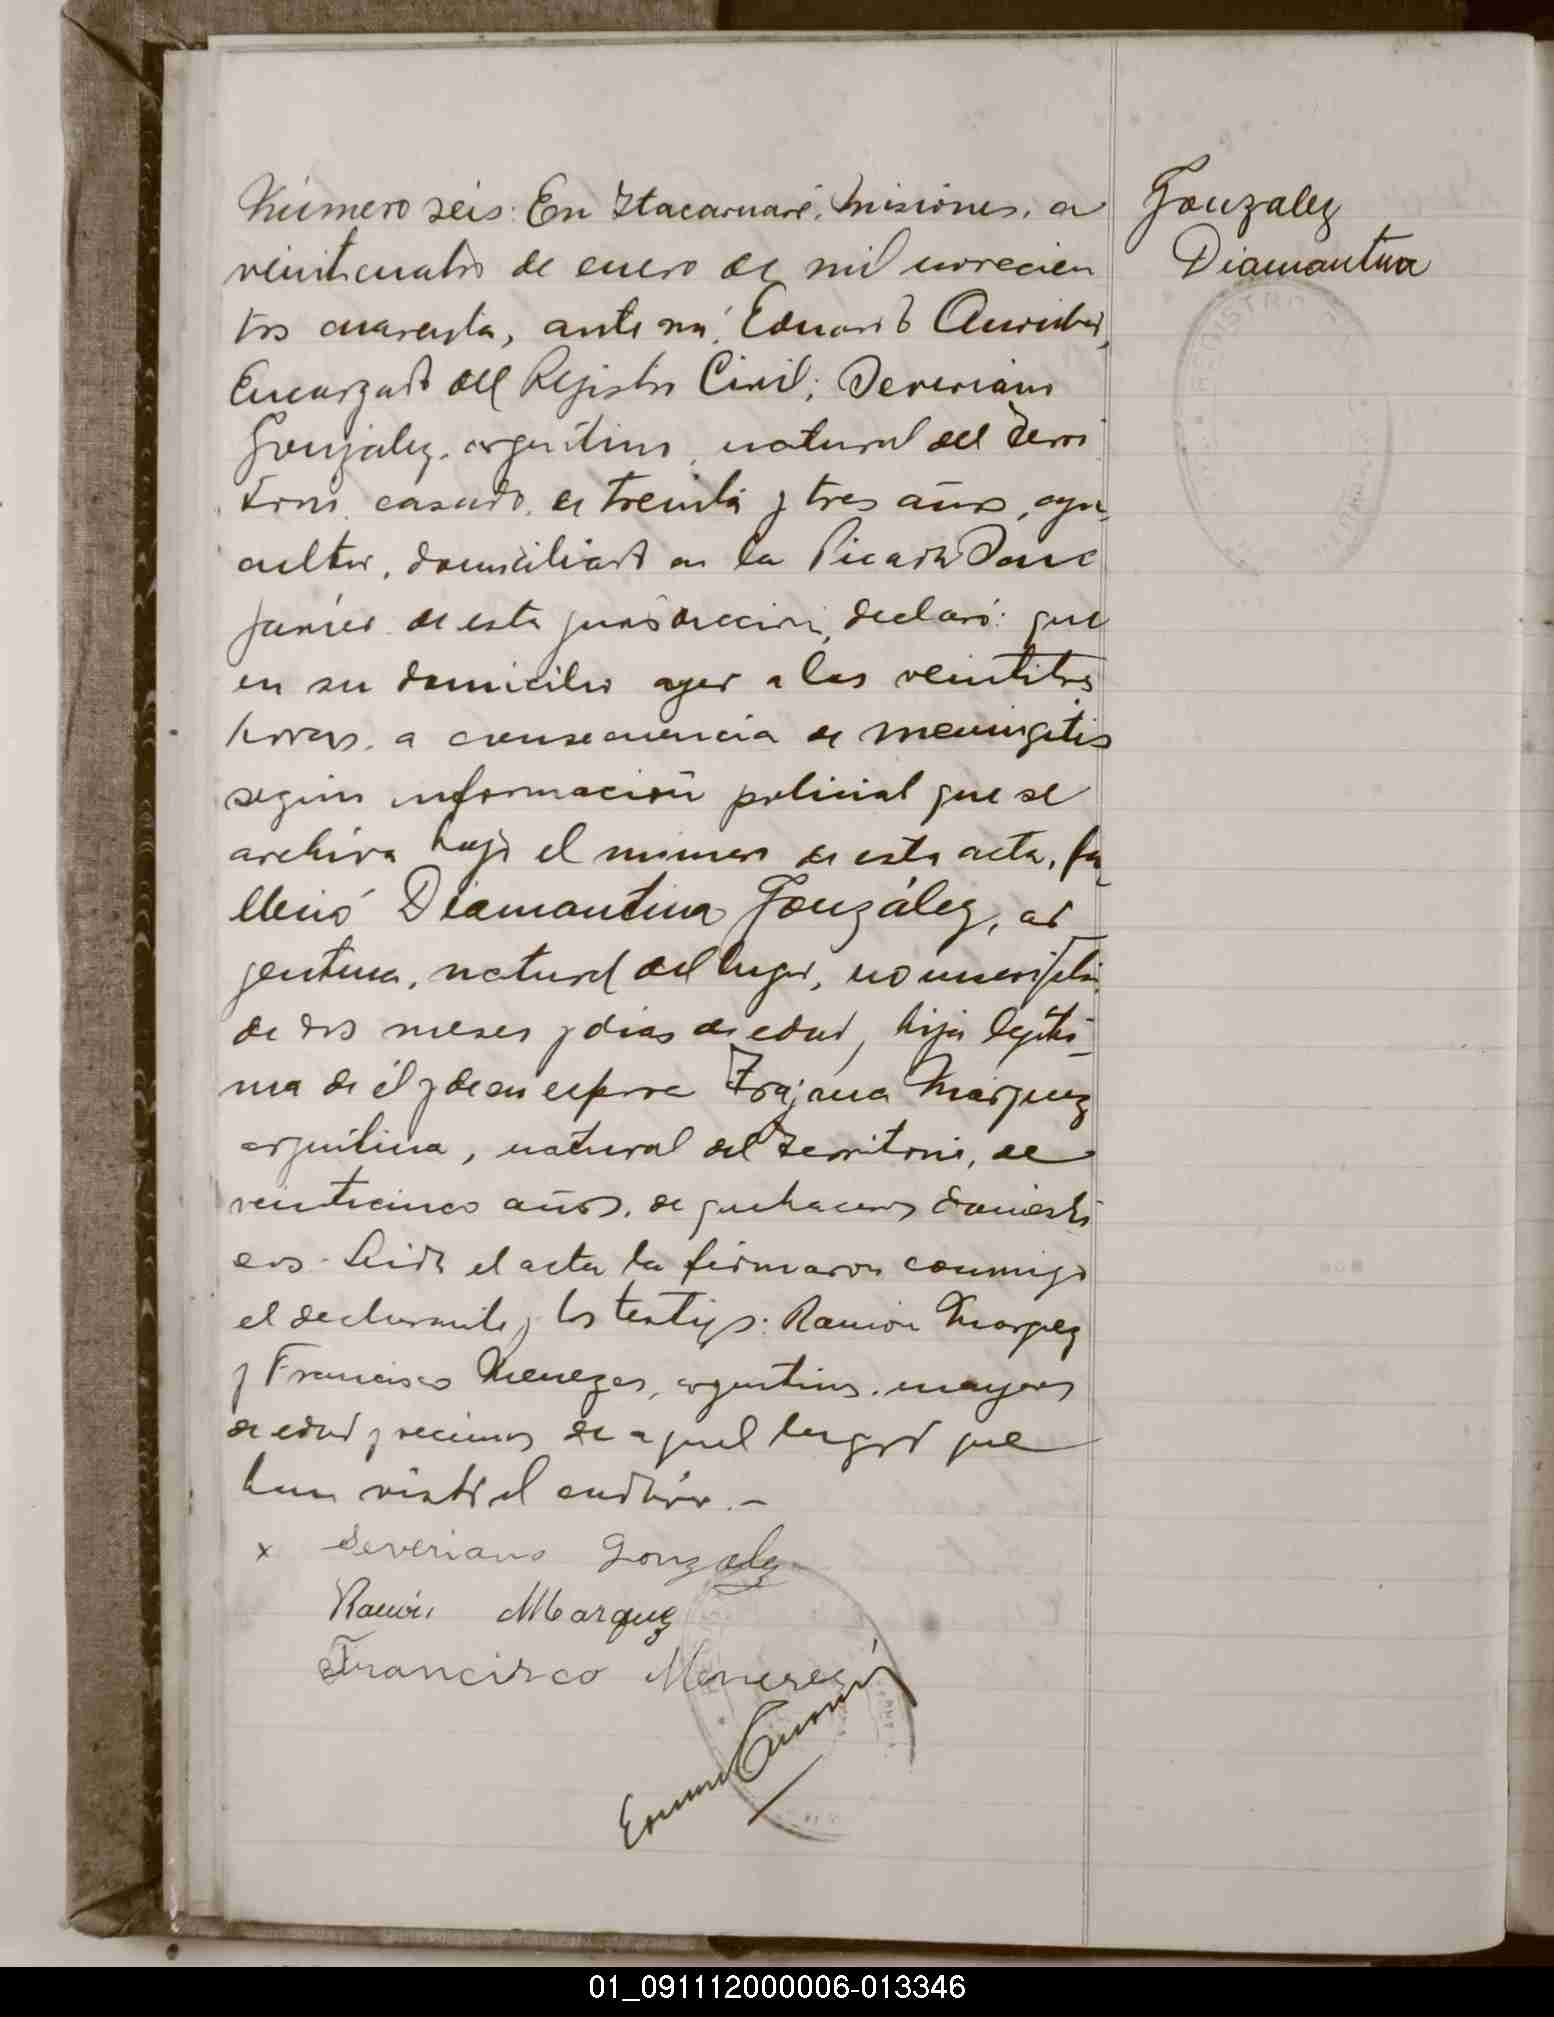 Número seis: En Itacaruaré, Misiones, a
veinticuatro de enero de mil novecien
tos cuarenta, ante mí, Eduardo
Encargado del Registro Civil; Severiano
González, argentino, natural del Terri
torio, casado, de treinta y tres años, agri
cultor, domiciliado en la Picada
de esta jurisdicción, declaró: que
en su domicilio ayer a las veintitres
horas, a consecuencia de meningitis
según información policial que se
archiva bajo el número de esta acta, fa
lleció Diamantina González, ar
gentina, natural del lugar, no inscripta,
de dos meses y dias de edad, hija legíti
ma de él y de su esposa Trajana Márquez
argentina, natural del Territorio, de
veinticinco años, de quehaceres domésti
cos. Leida el acta la firmaron conmigo
el declarante y los testigos: Ramón Marquez
y Francisco Menezes, argentinos, mayores
de edad y vecinos de aquel lugar que
han visto el cadáver.-
x Severiano Gonzalez
Ramón Marquez
Francisco Menezes
Gonzalez
Diamantina
REGISTRO
01_091112000006-013346